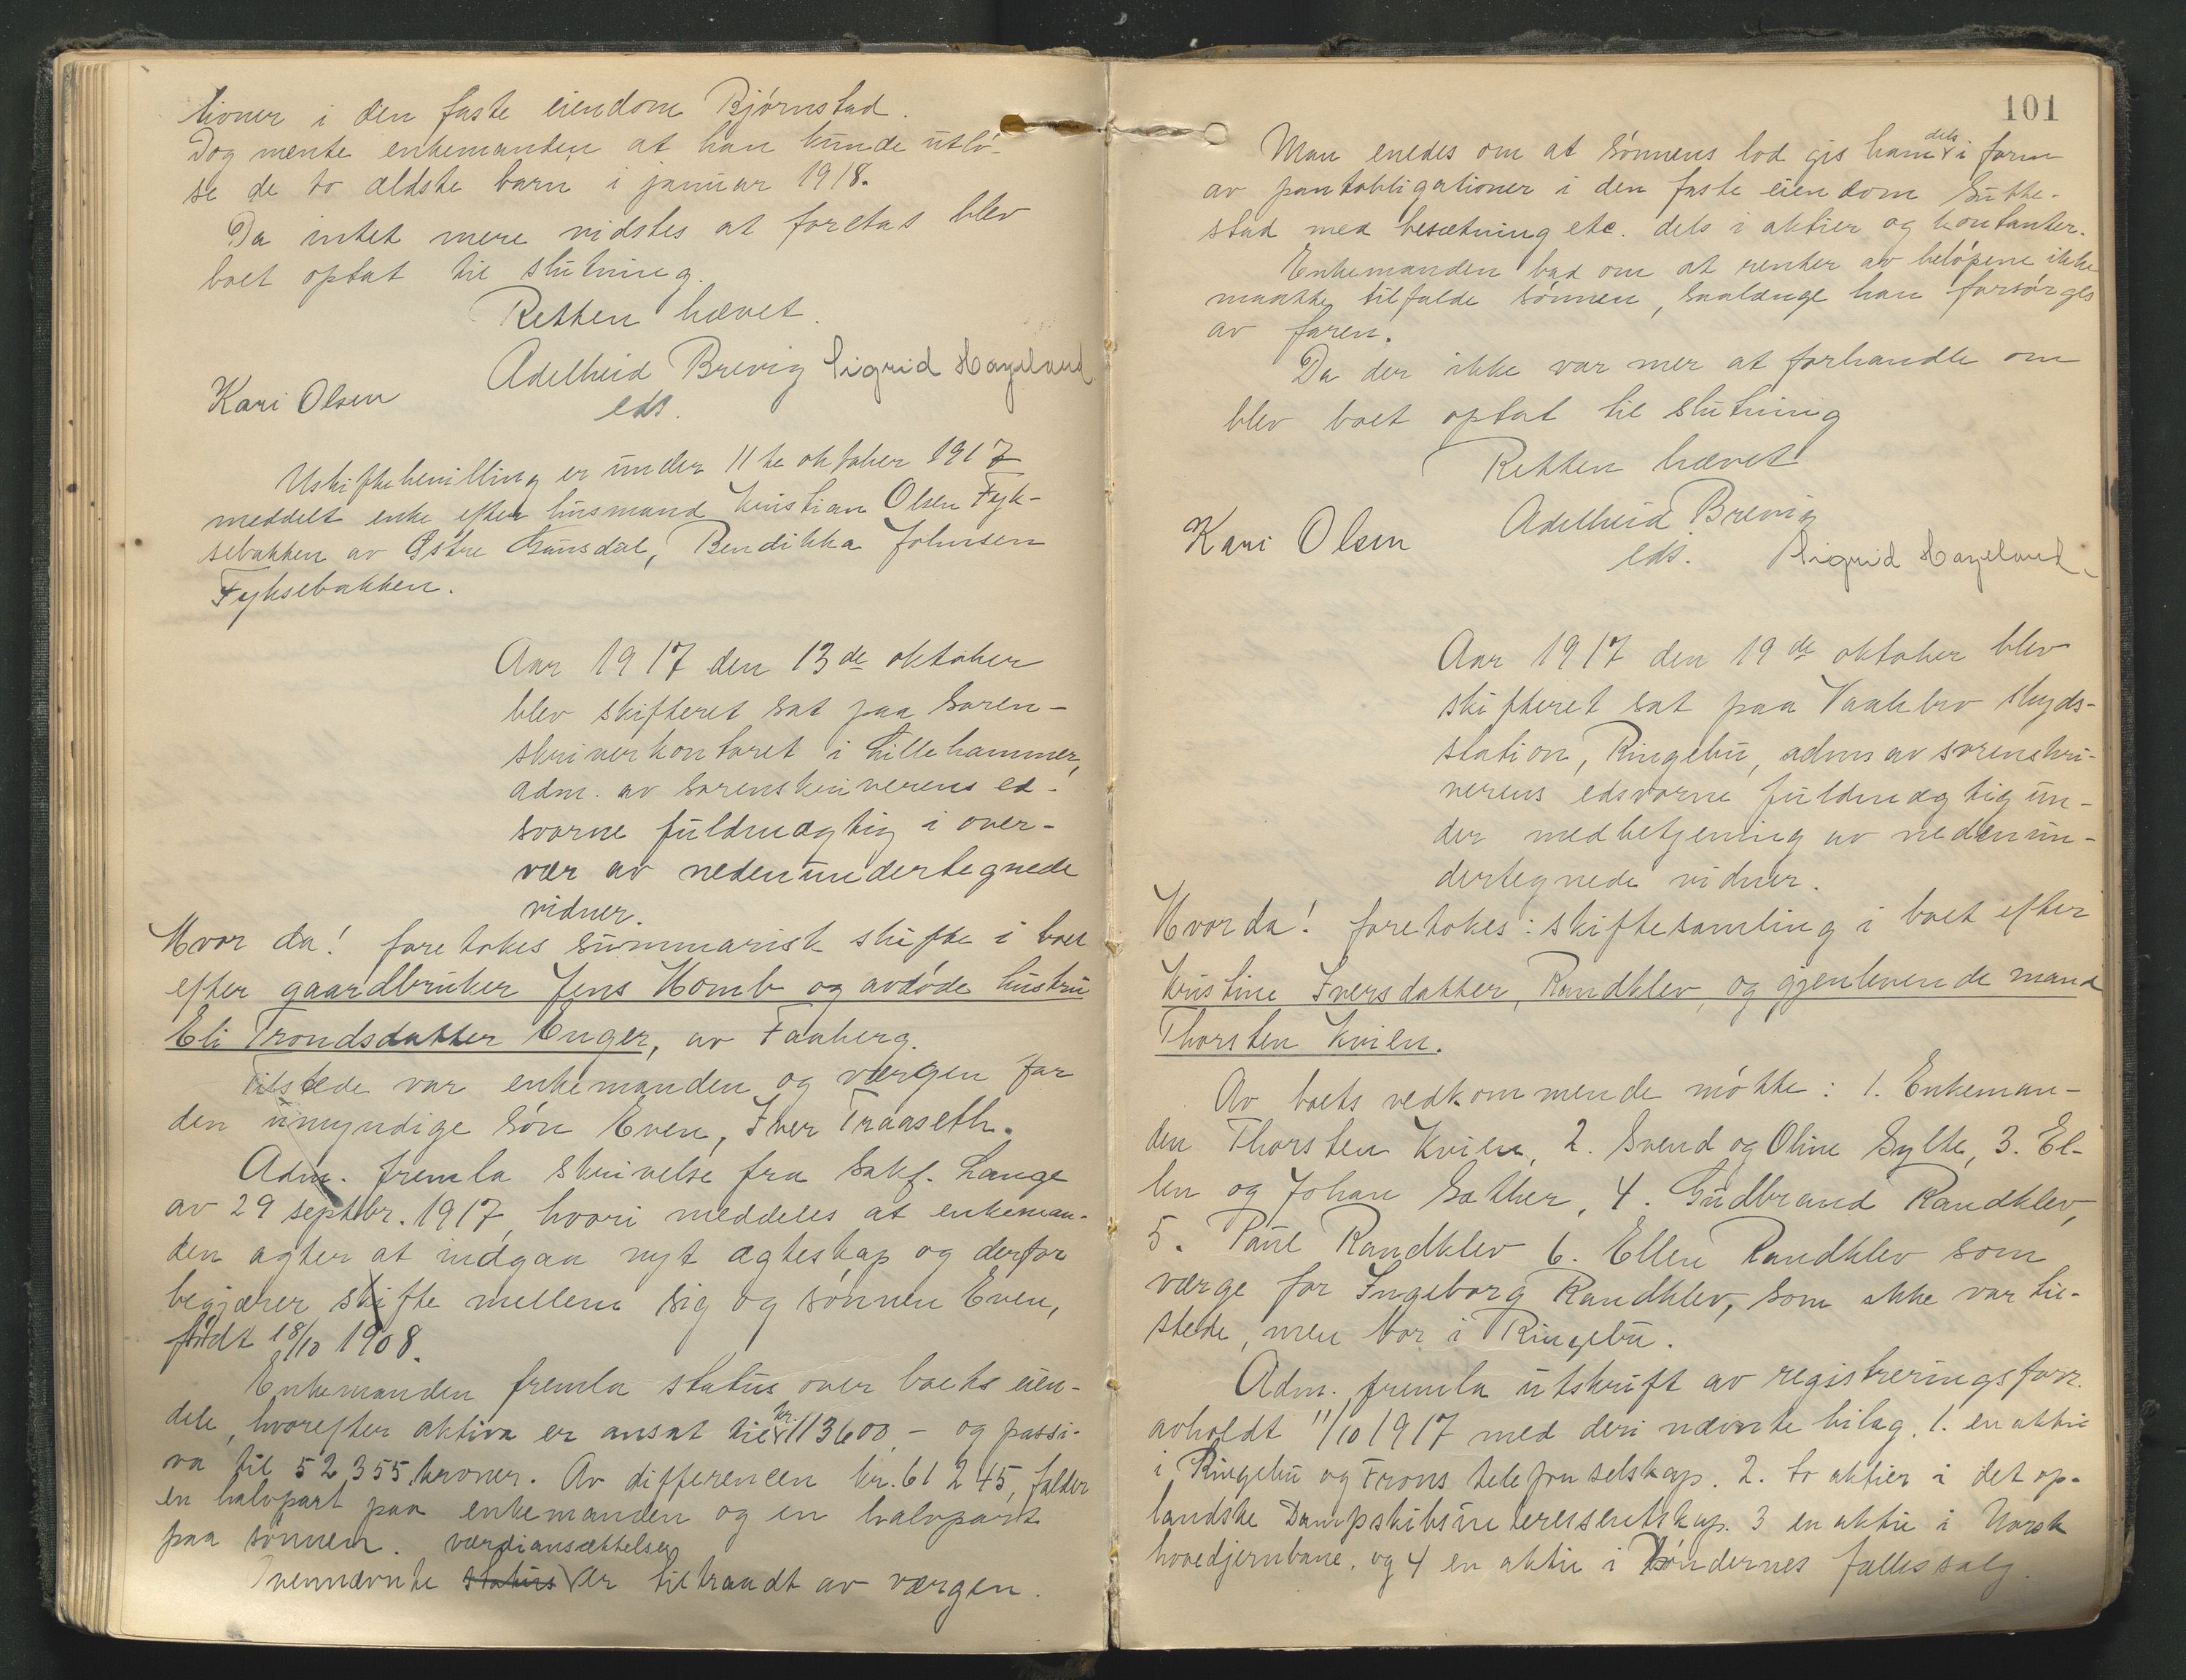 tioner i den faste eiendom Bjørnstad.
Dog mente enkemanden at han kunde utlø-
se de to ældste barn i januar 1918.
Da intet mere vidstes at foretas blev
boet optat til slutning.
Retten hævet.
Adelheid Brevig Sigrid Hageland
Kari Olsen
eds.
Uskiftebevilling er under 11te oktober 1917
meddelt enke efter husmand Kristian Olsen Fyk-
sebakken av Østre Gausdal, Bendikka Johnsen
Fyksebakken.
Aar 1917 den 13de oktober
blev skifteret sat paa Soren-
skriverkontoret i Lillehammer,
adm. av sorenskriverens ed-
svorne fuldmægtig i over-
vær av nedenundertegnede
vidner.
Hvor da! foretokes summarisk skifte i boet
efter gaardbruker Jens Homb og avdøde hustru
Eli Trondsdatter Enger, av Faaberg.
Tilstede var enkemanden og værgen for
den umyndige søn Even, Iver Traaseth.
Adm. fremla skrivelse fra sakf. Lange
av 29 septbr. 1917, hvori meddeles at enkeman-
den agter at indgaa nyt ægteskap og derfor
begjærer skifte mellem sig og sønnen Even,
født 18/10 1908.
Enkemanden fremla status over boets eien-
dele, hvorefter aktiva er ansat til kr. 113600,- og passi-
va til 52 355 kroner. Av differencen kr. 61 245, falder
en halvpart paa enkemanden og en halvpart
paa sønnen. værdiansættelser
Ovennævnte status er tiltraadt av værgen.
101
Man enedes om at sønnens lod gis ham dels i form
av pantobligationer i den faste eiendom Sutte-
stad med besætning etc. dels i aktier og kontanter.
Enkemanden bad om at renter av beløpene ikke
maatte tilfalde sønnen, saalænge han forsørges
av faren.
Da der ikke var mer at forhandle om
blev boet optat til slutning
Retten hævet
Adelheid Brevig
Kari Olsen
eds. Sigrid Hageland.
Aar 1917 den 19de oktober blev
skifteret sat paa Vaalebro skyds-
station, Ringebu, adm av sorenskri-
verens edsvorne fuldmægtig un-
der medbetjening av nedenun-
dertegnede vidner.
Hvor da! foretokes: skiftesamling i boet efter
Kristine Iversdatter, Randklev, og gjenlevende mand
Thorsten Kvilen.
Av boets vedkommende møtte: 1. Enkeman-
den Thorsten Kvilen, 2. Svend og Oline Sylte, 3. El-
len og Johan Sæther, 4. Gudbrand Randklev,
5. Paul Randklev 6. Ellen Randklev som
værge for Ingeborg Randklev, som ikke var til-
stede, men bor i Ringebu.
Adm. fremla utskrift av registreringsforr.
avholdt 11/10 1917 med deri nævnte bilag. 1. en aktie
i Ringebu og Frons telefonselskap. 2. to aktier i det op-
landske Dampskibsinteressentskap. 3 en aktie i Norsk
hovedjernbane. og 4 en aktie i Bøndernes fællessalg.